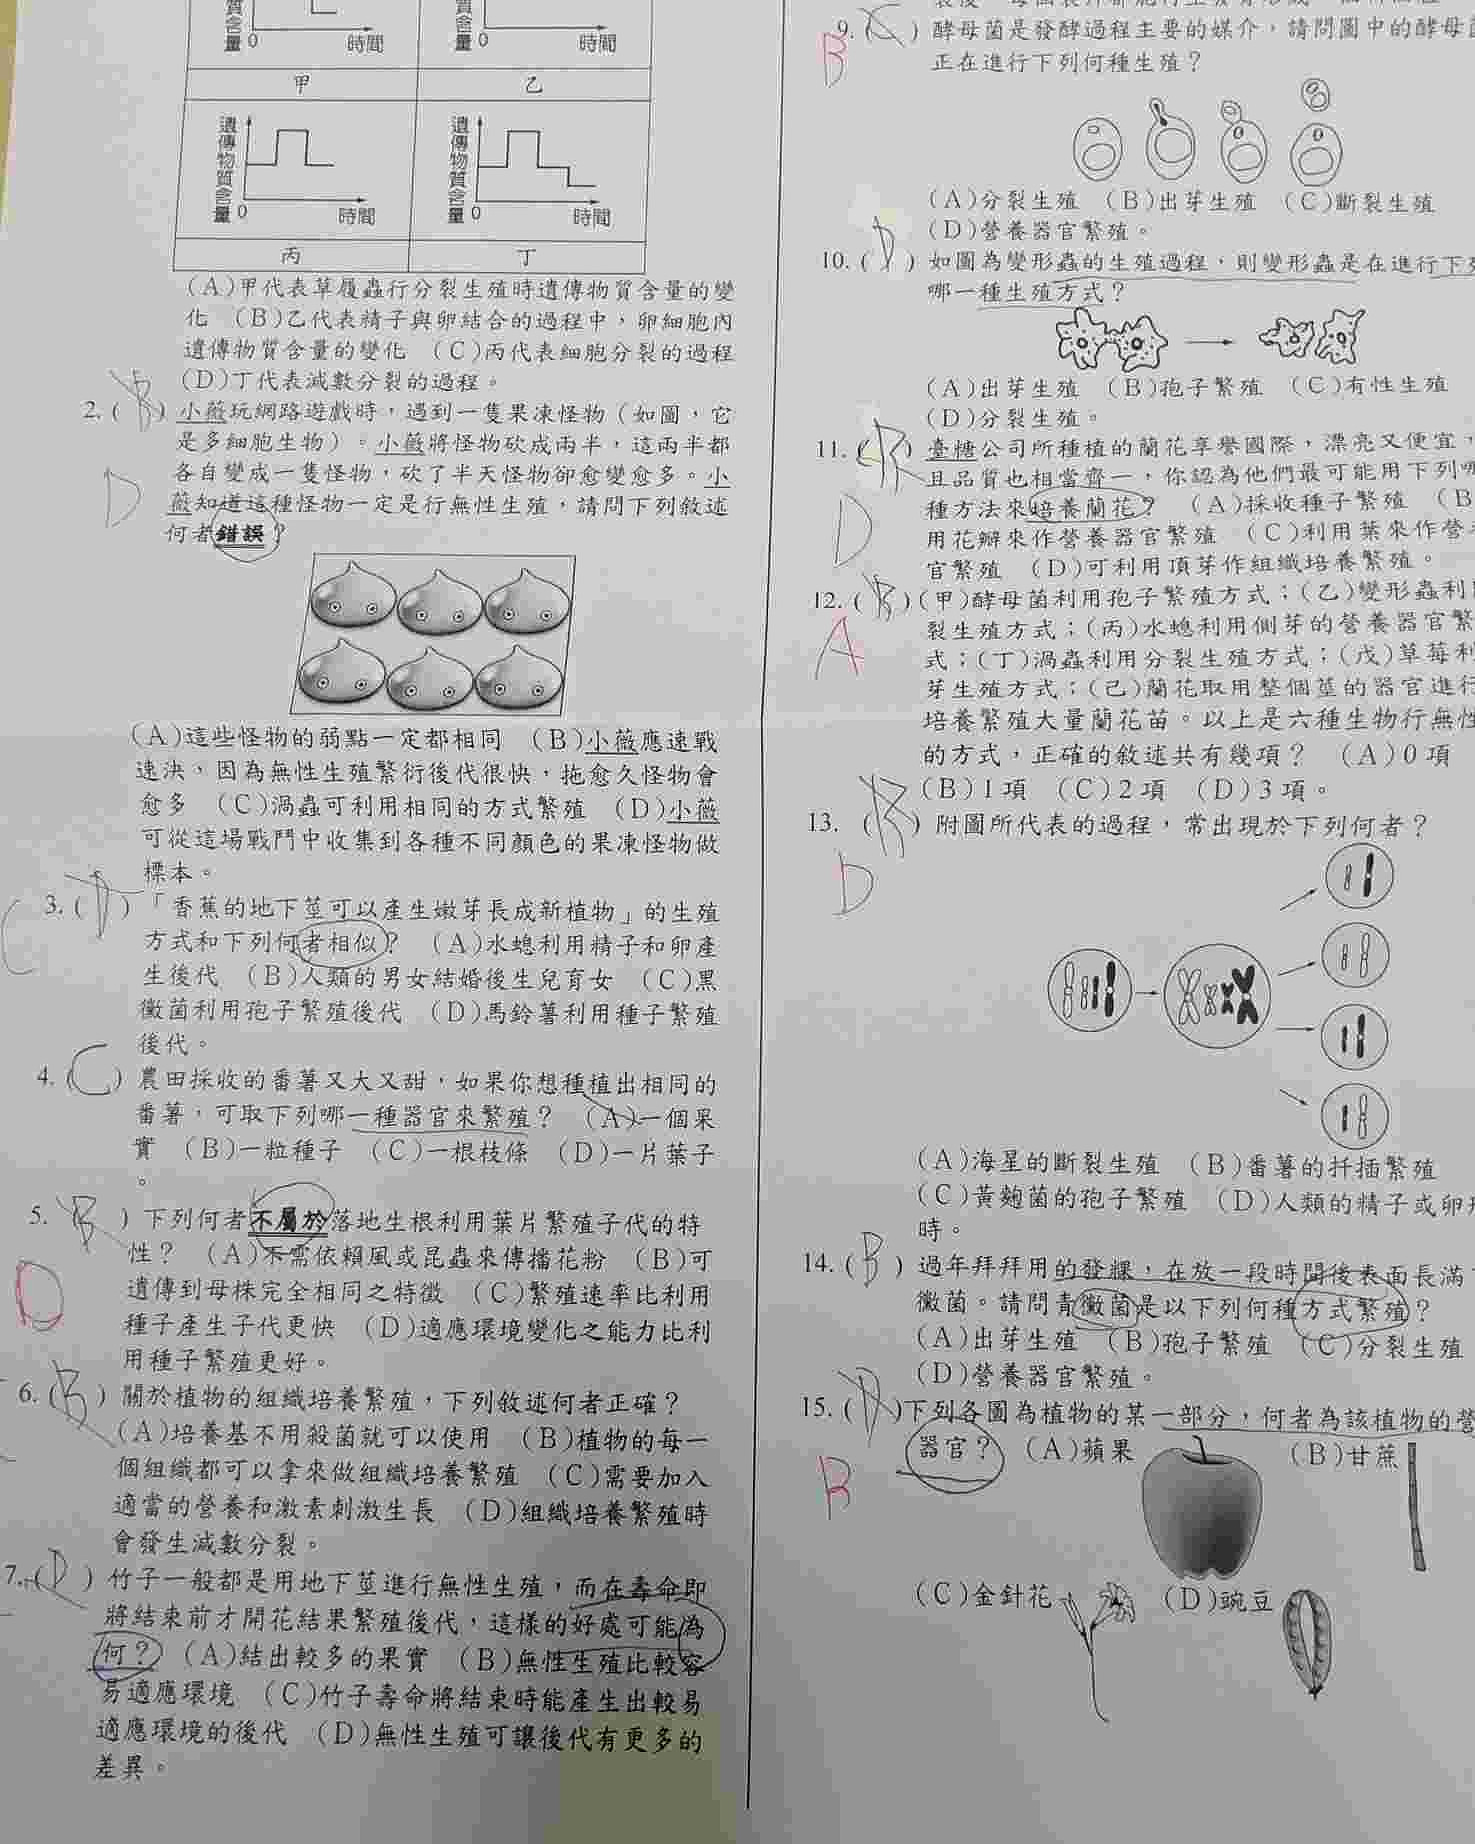 質含量 0 時間
質含量 0 時間
甲 乙
遺傳物質含量 0 時間
遺傳物質含量 0 時間
丙 丁
(A)甲代表草履蟲行分裂生殖時遺傳物質含量的變
化 (B)乙代表精子與卵結合的過程中，卵細胞內
遺傳物質含量的變化 (C)丙代表細胞分裂的過程
(D)丁代表減數分裂的過程。
2. (B) 小薇玩網路遊戲時，遇到一隻果凍怪物（如圖，它
是多細胞生物）。小薇將怪物砍成兩半，這兩半都
各自變成一隻怪物，砍了半天怪物卻愈變愈多。小
D
薇知道這種怪物一定是行無性生殖，請問下列敘述
何者錯誤？
(A)這些怪物的弱點一定都相同 (B)小薇應速戰
速決、因為無性生殖繁衍後代很快，拖愈久怪物會
愈多 (C)渦蟲可利用相同的方式繁殖 (D)小薇
可從這場戰鬥中收集到各種不同顏色的果凍怪物做
標本。
3. (D) 「香蕉的地下莖可以產生嫩芽長成新植物」的生殖
C
方式和下列何者相似？ (A)水螅利用精子和卵產
生後代 (B)人類的男女結婚後生兒育女 (C)黑
黴菌利用孢子繁殖後代 (D)馬鈴薯利用種子繁殖
後代。
4. (C) 農田採收的番薯又大又甜，如果你想種植出相同的
番薯，可取下列哪一種器官來繁殖？ (A)一個果
實 (B)一粒種子 (C)一根枝條 (D)一片葉子
。
5. B ) 下列何者不屬於落地生根利用葉片繁殖子代的特
性？ (A)不需依賴風或昆蟲來傳播花粉 (B)可
D
遺傳到母株完全相同之特徵 (C)繁殖速率比利用
種子產生子代更快 (D)適應環境變化之能力比利
用種子繁殖更好。
6. (B) 關於植物的組織培養繁殖，下列敘述何者正確？
(A)培養基不用殺菌就可以使用 (B)植物的每一
個組織都可以拿來做組織培養繁殖 (C)需要加入
適當的營養和激素刺激生長 (D)組織培養繁殖時
會發生減數分裂。
7. (D) 竹子一般都是用地下莖進行無性生殖，而在壽命即
將結束前才開花結果繁殖後代，這樣的好處可能為
何？ (A)結出較多的果實 (B)無性生殖比較容
易適應環境 (C)竹子壽命將結束時能產生出較易
適應環境的後代 (D)無性生殖可讓後代有更多的
差異。
9. (C) 酵母菌是發酵過程主要的媒介，請問圖中的酵母
B
正在進行下列何種生殖？
(A)分裂生殖 (B)出芽生殖 (C)斷裂生殖
(D)營養器官繁殖。
10. (D) 如圖為變形蟲的生殖過程，則變形蟲是在進行下
哪一種生殖方式？
(A)出芽生殖 (B)孢子繁殖 (C)有性生殖
(D)分裂生殖。
11. (B) 臺糖公司所種植的蘭花享譽國際，漂亮又便宜，
且品質也相當齊一，你認為他們最可能用下列
D
種方法來培養蘭花？ (A)採收種子繁殖 (B
用花瓣來作營養器官繁殖 (C)利用葉來作營
官繁殖 (D)可利用頂芽作組織培養繁殖。
12. (B) (甲)酵母菌利用孢子繁殖方式；(乙)變形蟲利
A
裂生殖方式；(丙)水螅利用側芽的營養器官繁
式；(丁)渦蟲利用分裂生殖方式；(戊)草莓利
芽生殖方式；(己)蘭花取用整個莖的器官進行
培養繁殖大量蘭花苗。以上是六種生物行無性
的方式，正確的敘述共有幾項？ (A)0項
(B)1項 (C)2項 (D)3項。
13. (B) 附圖所代表的過程，常出現於下列何者？
D
(A)海星的斷裂生殖 (B)番薯的扦插繁殖
(C)黃麴菌的孢子繁殖 (D)人類的精子或卵
時。
14. (B) 過年拜拜用的發粿，在放一段時間後表面長滿
黴菌。請問青黴菌是以下列何種方式繁殖？
(A)出芽生殖 (B)孢子繁殖 (C)分裂生殖
(D)營養器官繁殖。
15. (D) 下列各圖為植物的某一部分，何者為該植物的營
器官？ (A)蘋果 (B)甘蔗
B
(C)金針花 (D)豌豆